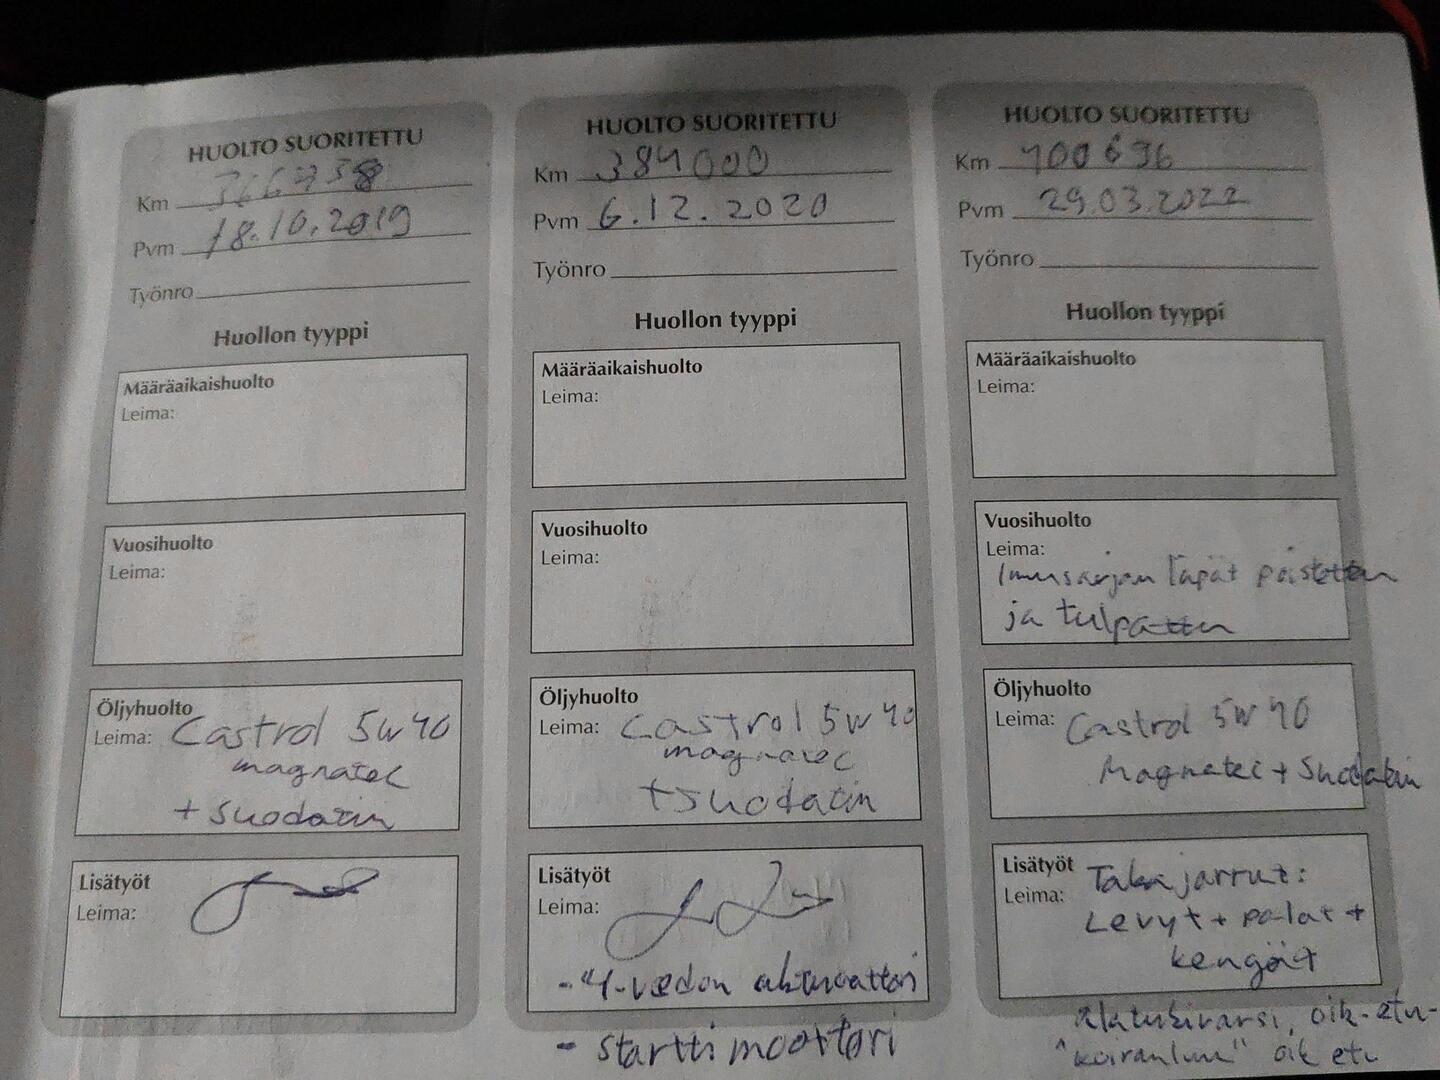 HUOLTO SUORITETTU
Km 366738
Pvm 18.10.2019
Työnro
Huollon tyyppi
Määräaikaishuolto
Leima:
Vuosihuolto
Leima:
Öljyhuolto
Leima: Castrol 5w40
magnatec
+ suodatin
Lisätyöt
Leima:
HUOLTO SUORITETTU
Km 384000
Pvm 6.12.2020
Työnro
Huollon tyyppi
Määräaikaishuolto
Leima:
Vuosihuolto
Leima:
Öljyhuolto
Leima: Castrol 5w40
magnatec
+ suodatin
Lisätyöt
Leima:
- 4-vedon aktuaattori
- startti moottori
HUOLTO SUORITETTU
Km 400636
Pvm 29.03.2022
Työnro
Huollon tyyppi
Määräaikaishuolto
Leima:
Vuosihuolto
Leima:
Imusarjan läpät poistettu
ja tulpattu
Öljyhuolto
Leima: Castrol 5w40
Magnatec + Suodatin
Lisätyöt
Leima: Takajarrut:
Levyt + palat +
kengät
alatukivarsi, oik-etu-
"koiranluu" oik etu